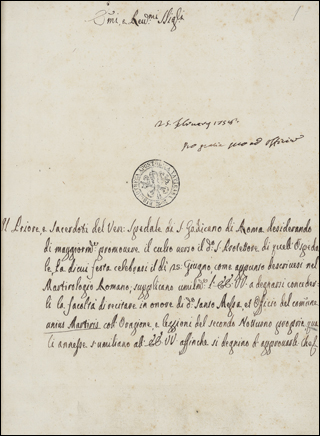 Em̃i, e Rev.mi Sigri
1
25 february 1858
pro gratia quoad officium
Il Priore, e Sacerdoti del Ven: Spedale di S. Gallicano di Roma desiderando
di maggiorm.e promuovere il culto verso il d.o S. Protettore di quell'Ospeda
le, la di cui festa celebrasi il dì 25: Giugno, come appunto descrivesi nel
Martirologio Romano, supplicano umilm.e l'EE. VV. a degnarsi conceder
li la facoltà di recitare in onore di d.o Santo Messa, ed Officio del comune
unius Martiris coll'Orazione, e lezzioni del secondo Notturno propria, qua
li annesse s'umiliano all'EE. VV. affinche si degnino d'approvarle. Che